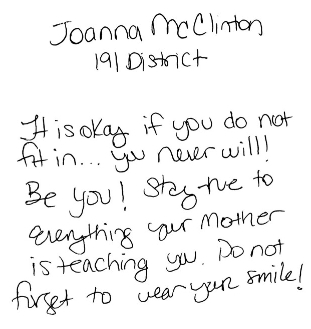 Joanna McClinton
191 District
It is okay if you do not
fit in... you never will!
Be you! Stay true to
everything your Mother
is teaching you. Do not
forget to wear your smile!